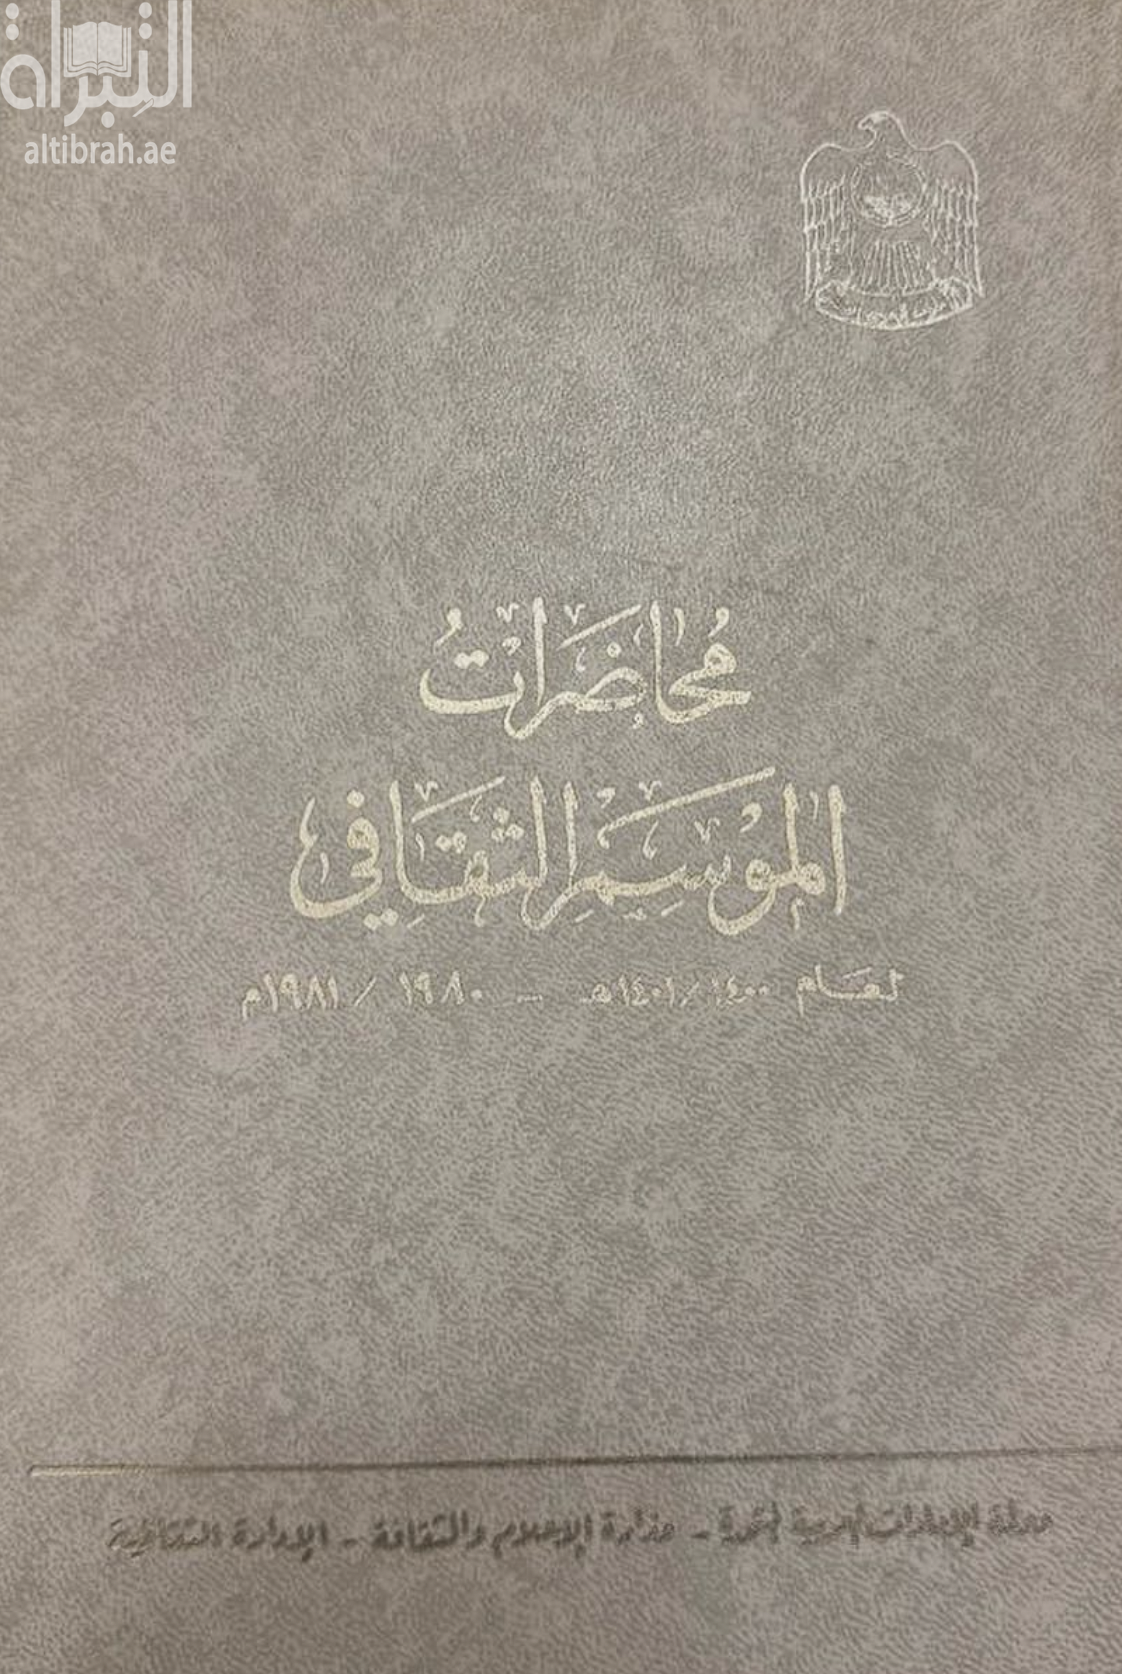 التبراة
altibrah.ae
مُحَاضَرَاتُ
المَوْسِمِ الثَّقَافِي
لعام ١٤٠٠/١٤٠١هـ - ١٩٨٠ / ١٩٨١م
دولة الإمارات العربية المتحدة - وزارة الإعلام والثقافة - الإدارة الثقافية